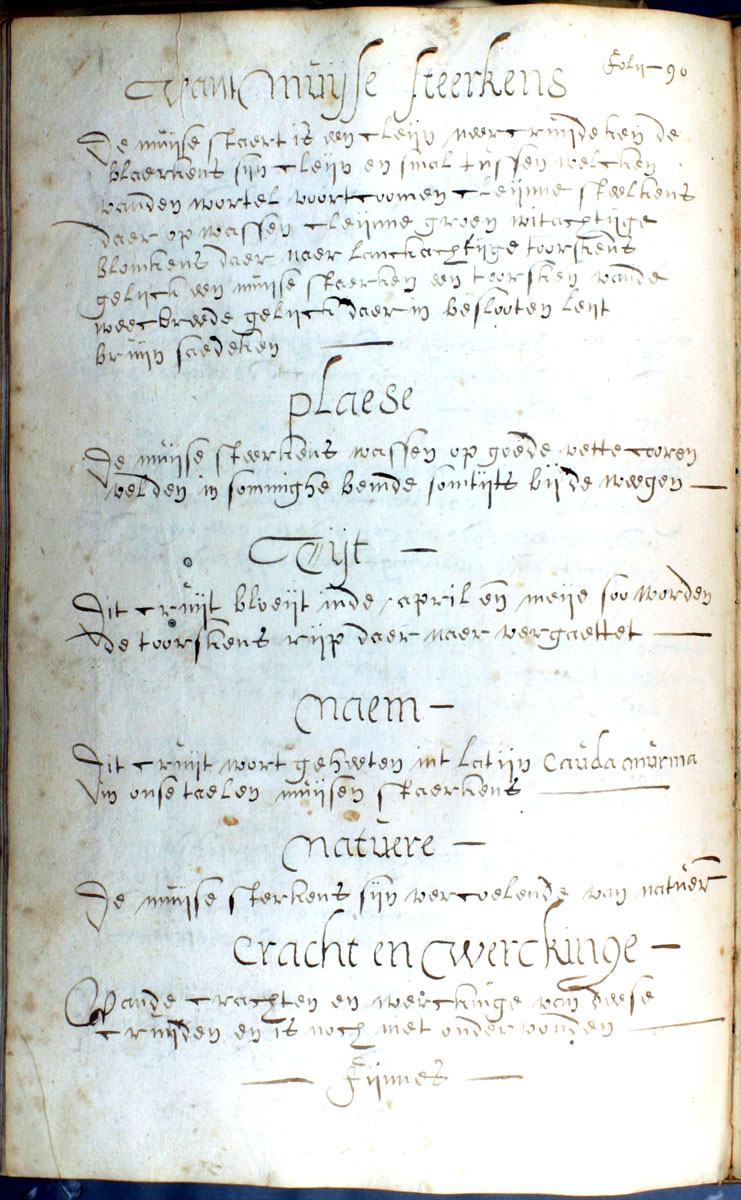 Folij 90
Vant Muijse steerkens
De muijse staert is een cleijn neer cruideken de
blaerkens sijn cleijn en smal tussen welcken
vanden wortel voortcoomen cleijnne steelkens
daer op wassen cleijnne groen witachtijge
blomkens daer naer lanckachtijge toorskens
gelijck een muijse staerken een toorsken vande
weecbreede gelijck daer in beslooten leit
bruijn saedeken
plaese
De muijse steerkens wassen op goede vette cooren
velden in sommighe bemde somtijts bij de weegen
Tijt
Dit cruijt bloeijt inde april en meije soo worden
de toorskens rijp daer naer vergaettet
Naem
Dit cruijt wort geheeten int latijn Cauda murina
in onse taelen muijsen staerkens
Natuere
De muijse sterkens sijn vercoelende van natuer
Cracht en Werckinge
Vande crachten en werckinge van deese
cruijden en is noch niet ondervonden
Fijnnes